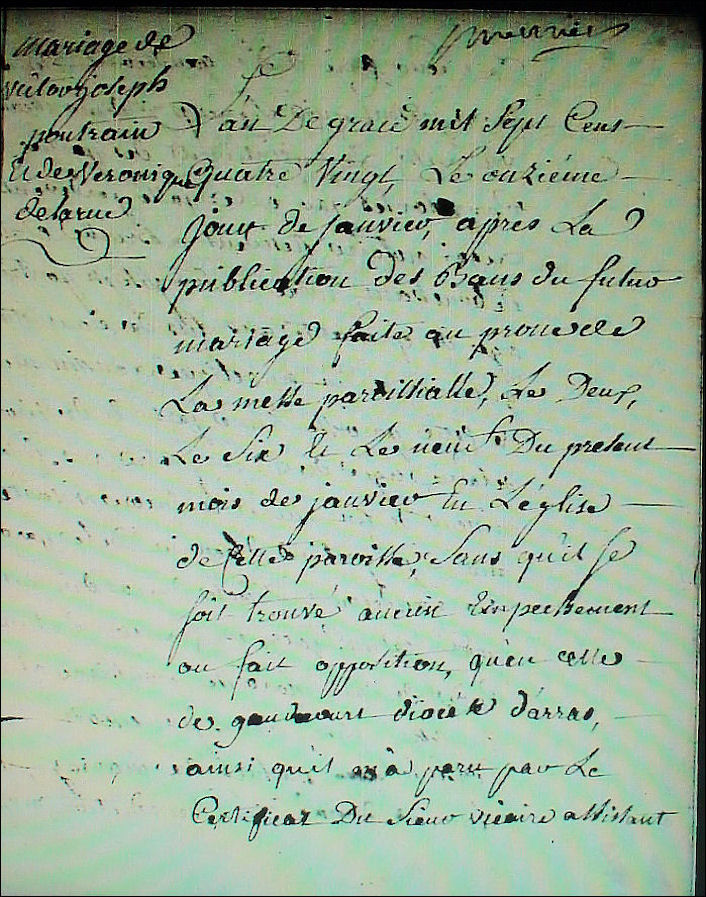 mariage de
victor joseph
poutrain
Et de Veronique
delarue
premier
L'an De grace mil Sept Cens
Quatre Vingt, Le onzieme
jour de janvier, apres La
publication des Bans du futur
mariage faite au prone de
La messe paroissialle, Le Deux,
Le Six et Le neuf Du present
mois de janvier En L'eglise
de Cette paroisse, Sans qu'il se
soit trouvé aucun Empechement
ou fait opposition, qu'en celle
de diocese d'arras,
ainsi qu'il m'a paru par Le
Certificat Du Sieur vicaire assistant